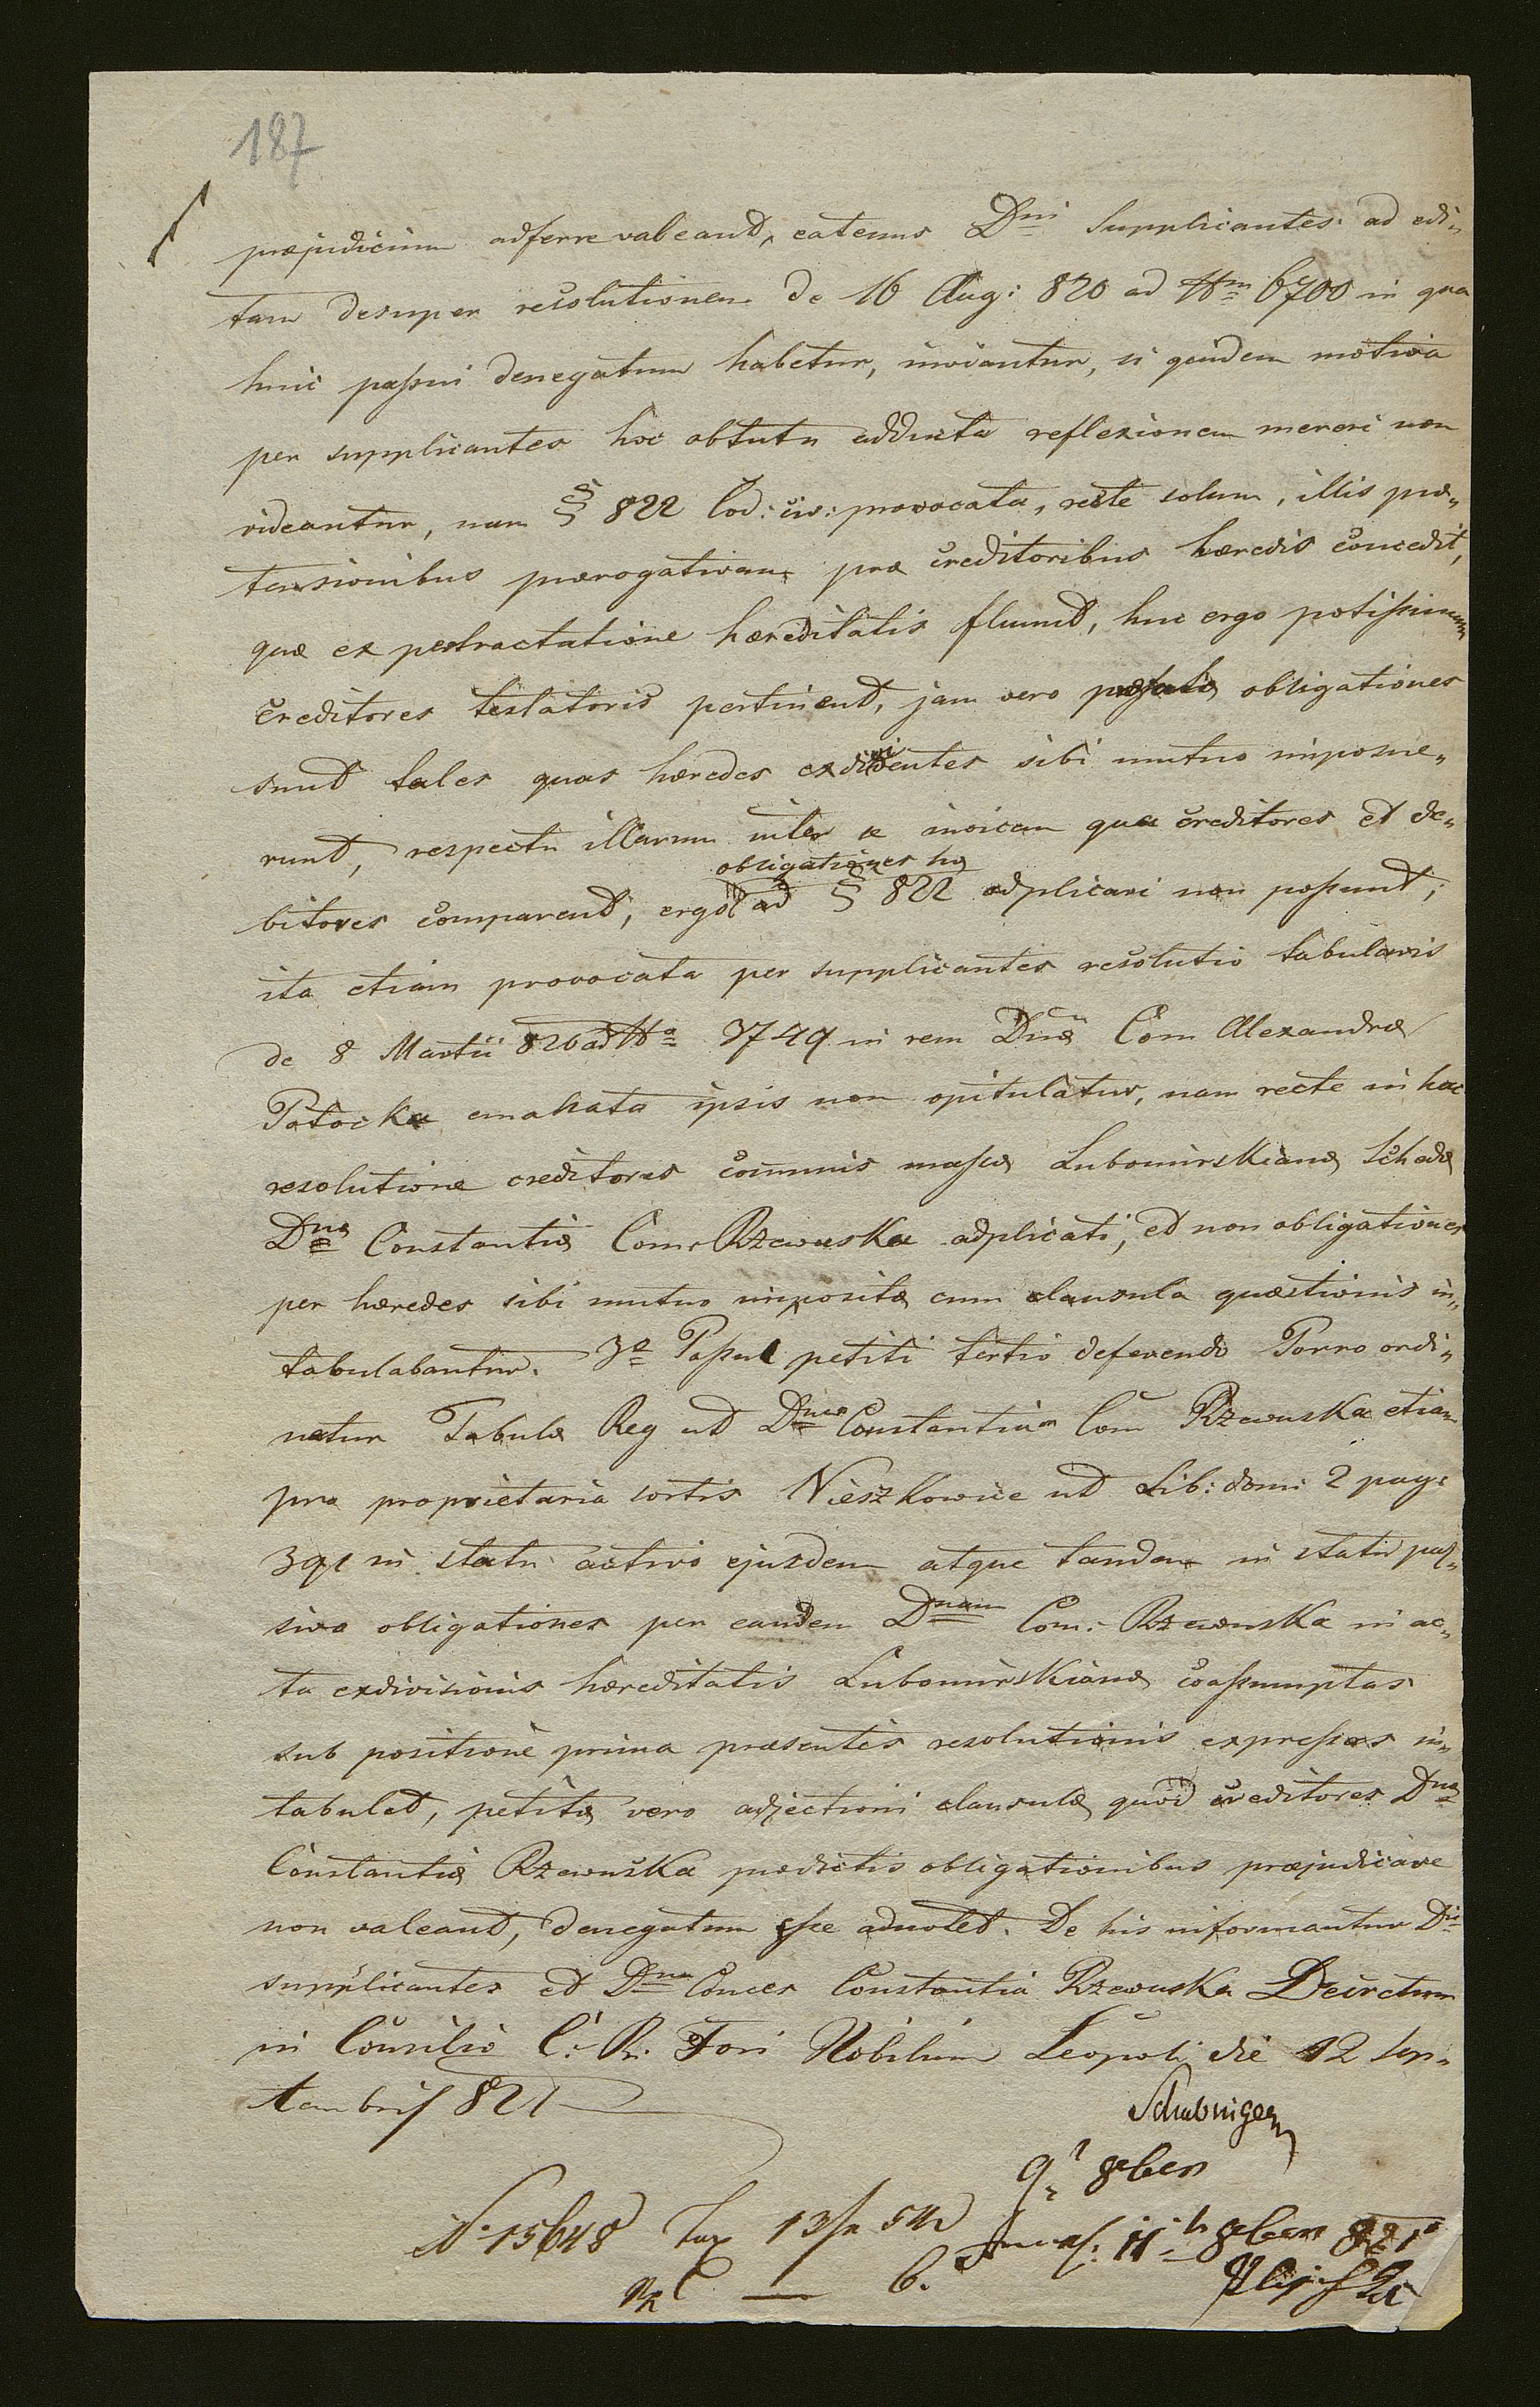 187
præjudicium adferre valeant, eatenus Dni Supplicantes ad edi„
tam desuper resolutionem de 16 Aug: 820 ad Nrm 6700 in qua
huic passui denegatum habetur, inviantur, si quidem motiva
per supplicantes hoc obtutu adducta reflexionem mereri non
videantur, nam § 822 Cod: civ: provocata, recte solum, illis præ„
tensionibus prærogativam præ creditoribus hæredis concedit,
quæ ex pertractatione hæreditatis fluunt, huc ergo potissimum
creditores testatoris pertinent, jam vero præfatæ obligationes
sunt tales quas hæredes exdividentes sibi mutuo imposue„
runt, respectu illarum inter se invicem qua creditores et de„
obligationes hæ
bitores comparent, ergo ad § 822 adplicari non possunt;
ita etiam provocata per supplicantes resolutio tabularis
de 8 Martii 826 ad Nra 3749 in rem Dnæ Com Alexandræ
Potocka emanata ipsis non opitulatur, nam recte in hac
resolutione creditores communis massæ Lubomirskianæ Schedæ
Dnæ Constantiæ Com: Rzewuska adplicati, et non obligationes
per hæredes sibi mutuo impositæ cum clausula quæstionis in„
tabulabantur. 3o Passui petiti tertio deferendo Porro ordi„
natur Tabulæ Reg ut Dnam Constantiam Com Rzewuska etiam
pro proprietaria sortis Nieszkowice ut Lib: dom: 2 pag:
391 in statu activo ejusdem atque tandem in statu pas„
sivo obligationes per eandem Dnam Com: Rzewuska in ac„
ta exdivisionis hæreditatis Lubomirskianæ coassumptas
sub positione prima præsentis resolutionis expressas in„
tabulet, petitæ vero adjectioni clausulæ quod creditores Dnæ
Constantiæ Rzewuska prædictis obligationibus præjudicare
non valeant, denegatum esse adnotet. De his informantur Dni
supplicantes et Dna Comes Constantia Rzewuska Decretum
in Consilio C: R: Fori Nobilium Leopoli die 12 Sep„
tembris 821
Schubniger
9r 8ber
N. 15648 Tax 13 fr 54
11 8ber 821
6.